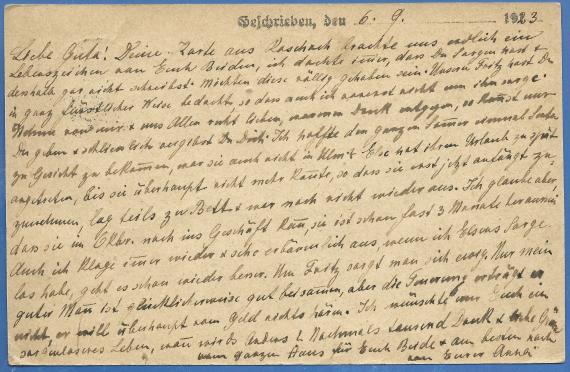 Geschrieben, den 6. 9. 1923
Liebe Guta! Deine Karte aus Roschach brachte uns endlich ein
Lebenszeichen von Euch Beiden, ich dachte immer, dass Du Sorgen hast &
deshalb gar nicht schreibst. Möchten diese völlig gehoben sein. Unseren Fritz hast Du
in ganz Weise bedacht, so dass auch ich
Nimm von mir & uns Allen recht lieben, Dank entgegen,
Du geben & schliesslich vergisst Du Dich. Ich hoffte den ganzen Sommer einmal
zu Gesicht zu bekommen, war sie auch nicht in Ulm? Else hat ihren Urlaub zu spät
angetreten, bis sie überhaupt nicht mehr konnte, so dass sie erst jetzt anfängt zu-
zunehmen, lag teils zu Bett & war noch nicht wieder aus. Ich glaube aber
dass sie im Okbr. noch ins Geschäft kann, sie ist schon fast 3 Monate heraussen
Auch ich klage immer wieder & wenn ich Etwas Sorge
los habe, geht es schon wieder besser. Um Fritz sorgt man sich ewig. Nur mein
guter Mann ist glücklicherweise gut beisammen, aber die Teuerung erträgt er
nicht, er will überhaupt vom Geld nichts hören. Ich wünschte mir & Euch ein
sorgenloseres Leben, wann wirds Anders? Nochmals tausend Dank &
vom ganzen Haus für Euch Beide & am besten noch
von Eurer Anna